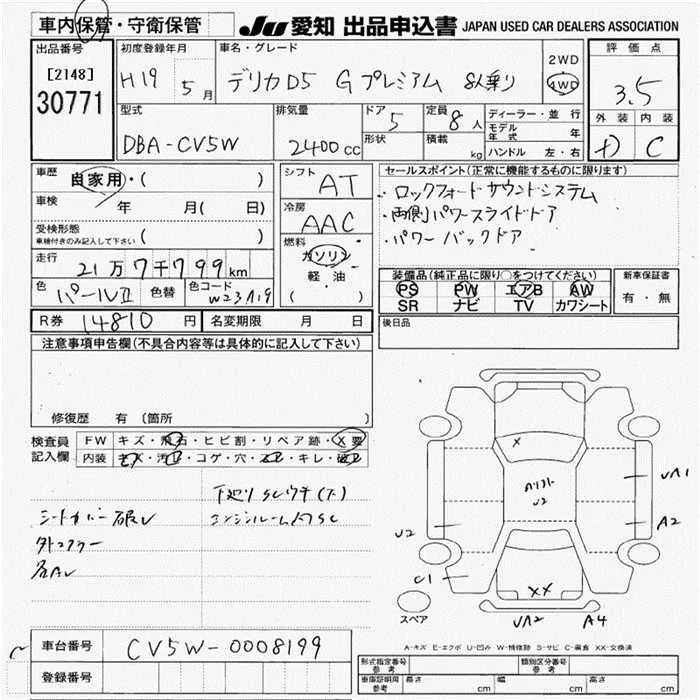 車内保管・守衛保管
JU 愛知 出品申込書 JAPAN USED CAR DEALERS ASSOCIATION
出品番号
[2148]
30771
初度登録年月
H19 5月
車名・グレード
デリカD5 Gプレミアム 8人乗り
2WD
4WD
評価点
3.5
外装 内装
D C
型式
DBA-CV5W
排気量
2400cc
ドア
5
形状
定員
8人
積載
kg
ディーラー・並行
モデル年式 年
ハンドル 左・右
車歴
自家用・( )
車検
年 月( 日)
受検形態
車検付きのみ記入して下さい ( )
走行
21万7千799km
色
パールII
色替
色コード
W23A19
シフト
AT
冷房
AAC
燃料
ガソリン
軽・油
( )
セールスポイント(正常に機能するものに限ります)
・ロックフォードサウンドシステム
・両側パワースライドドア
・パワーバックドア
装備品(純正品に限り○をつけてください)
PS PW エアB AW
SR ナビ TV カワシート
新車保証書
有・無
R券 14810円
名変期限 月 日
後日品
注意事項申告欄(不具合内容等は具体的に記入して下さい)
修復歴 有 〔箇所
検査員
記入欄
FW キズ・飛石・ヒビ割・リペア跡・X要
内装 キズ・汚レ・コゲ・穴・スレ・キレ・破レ
下廻りSCウチ(下)
シートカバー破レ
エンジンルーム内SC
外コウラー
各Aレ
X
U2
U2
C1
XX
UA1
A2
UA2
A4
スペア
A-キズ E-エクボ U-凹み W-補修跡 S-サビ C-腐食 XX-交換済
車台番号
CV5W-0008199
登録番号
形式指定番号
参考
類別区分番号
参考
車庫証明用
参考
長さ cm 幅 cm 高さ cm